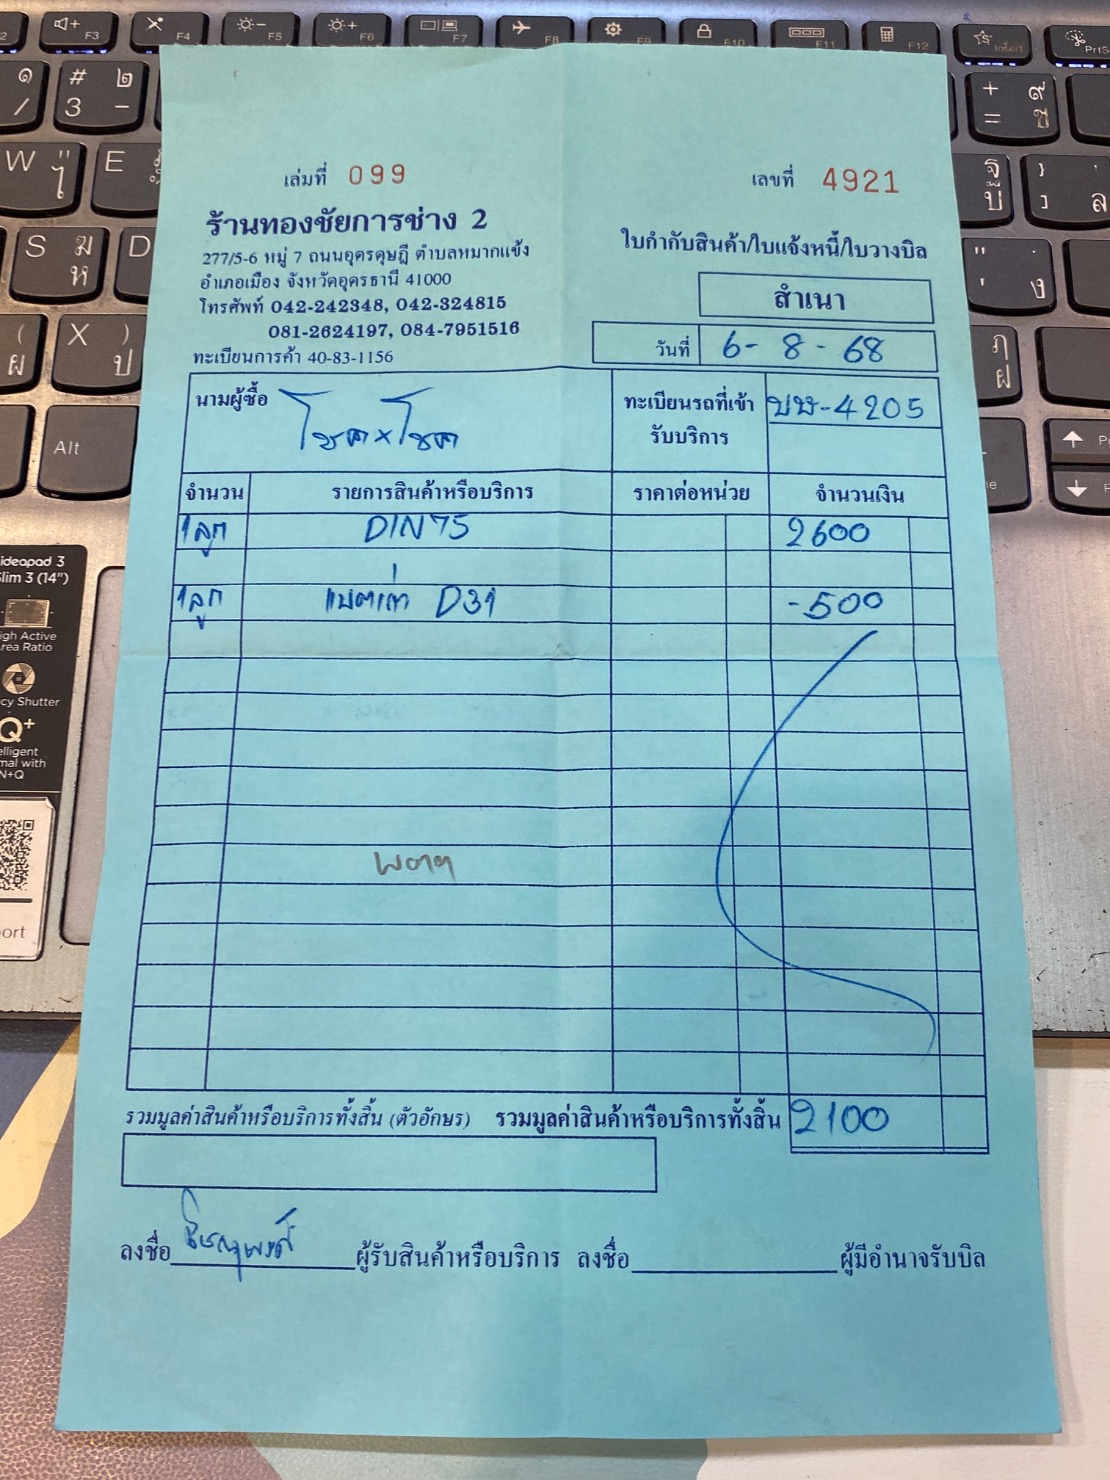 เล่มที่ 099
เลขที่ 4921
ร้านทองชัยการช่าง 2
277/5-6 หมู่ 7 ถนนอุดรดุษฎี ตำบลหมากแข้ง
อำเภอเมือง จังหวัดอุดรธานี 41000
โทรศัพท์ 042-242348, 042-324815
081-2624197, 084-7951516
ทะเบียนการค้า 40-83-1156
ใบกำกับสินค้า/ใบแจ้งหนี้/ใบวางบิล
สำเนา
วันที่ 6-8-68
นามผู้ซื้อ โชค×โชค
ทะเบียนรถที่เข้ารับบริการ บษ-4205
จำนวน รายการสินค้าหรือบริการ ราคาต่อหน่วย จำนวนเงิน
1ลูก DIN75 2600
1ลูก แบตเก่า D31 -500
รวมมูลค่าสินค้าหรือบริการทั้งสิ้น (ตัวอักษร) รวมมูลค่าสินค้าหรือบริการทั้งสิ้น 2100
ลงชื่อ ผู้รับสินค้าหรือบริการ ลงชื่อ ผู้มีอำนาจรับบิล
F3 F4 F5 F6 F7 F8 F9 F10 F11 F12 Insert PrtS
# 3
W E
S D
X
Alt
ideapad 3
Slim 3 (14")